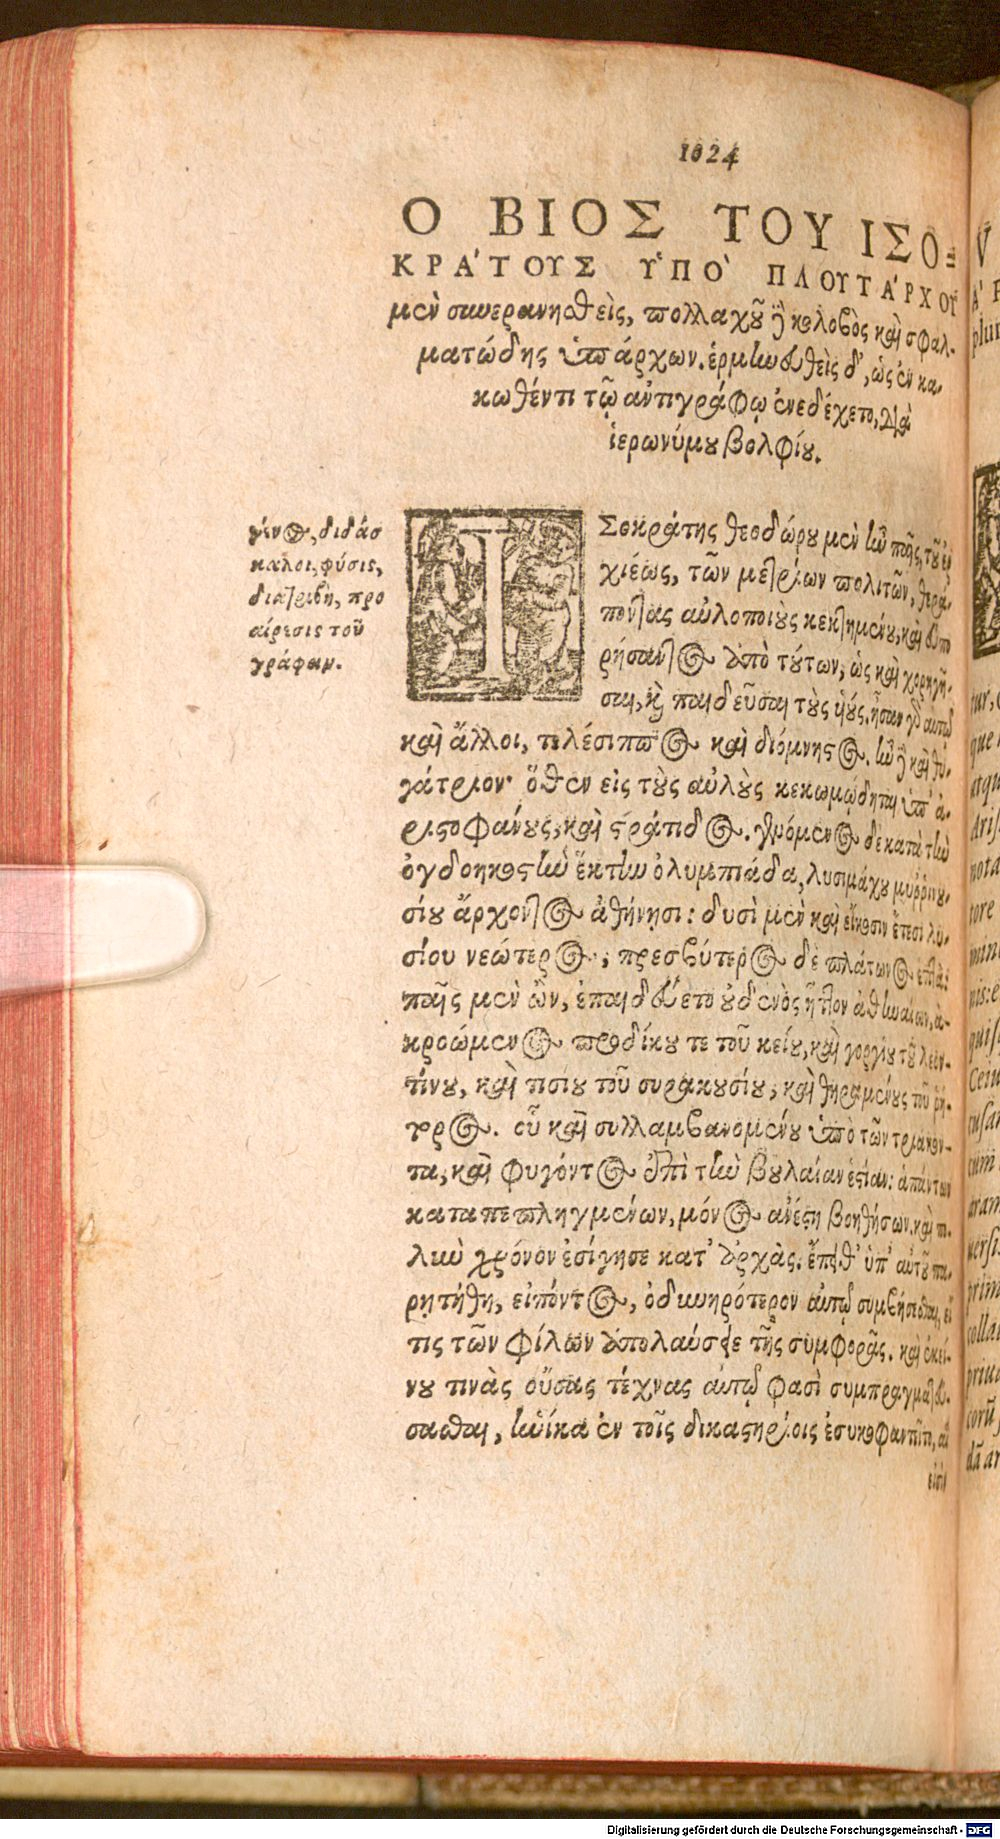 1024
Ο ΒΙΟΣ ΤΟΥ ΙΣΟ=
ΚΡΑ΄ΤΟΥΣ ΥΠΟ` ΠΛΟΥΤΑ΄ΡΧΟΥ
μὲν συνερανισθεὶς, πολλαχοῦ ἢ κολοβὸς καὶ σφαλ-
ματώδης ὑπάρχων. ἑρμηνευθεὶς δ', ὡς ἐν κα-
κωθέντι τῷ ἀντιγράφῳ ἐνεδέχετο, διὰ
ἱερωνύμου βολφίου.
γένος, διδάσ
καλοι, φύσις,
διατριβὴ, προ
αίρεσις τοῦ
γράφειν.
ΙΣοκράτης θεοδώρου μὲν ἦν παῖς, τοῦ ἐρ
χιέως, τῶν μετρίων πολιτῶν, θερά-
ποντας αὐλοποιοὺς κεκτημένου, καὶ εὐπο
ρήσαντος ἀπὸ τούτων, ὡς καὶ χορηγῆ-
σαι, καὶ παιδεῦσαι τοὺς υἱούς. ἦσαν γὰρ αὐτῷ
καὶ ἄλλοι, τελέσιππος καὶ διόμνηστος. ἦν δὲ καὶ θυ-
γάτριον· ὅθεν εἰς τοὺς αὐλοὺς κεκωμῴδηται ὑπ' ἀ-
ριστοφάνους, καὶ στράτιδος. γενόμενος δὲ κατὰ τὴν
ὀγδοηκοστὴν ἕκτην ὀλυμπιάδα, λυσιμάχου μυῤῥινου-
σίου ἄρχοντος ἀθήνησι: δυσὶ μὲν καὶ εἴκοσιν ἔτεσι λυ-
σίου νεώτερος, πρεσβύτερος δὲ πλάτωνος ἑπτά:
παῖς μὲν ὢν, ἐπαιδεύετο οὐδενὸς ἧττον ἀθηναίων, ἀ-
κροώμενος προδίκου τε τοῦ κείου, καὶ γοργίου τοῦ λεον-
τίνου, καὶ τισίου τοῦ συρακουσίου, καὶ θηραμένους τοῦ ῥή-
τορος. οὗ καὶ συλλαμβανομένου ὑπὸ τῶν τριάκον-
τα, καὶ φυγόντος ἐπὶ τὴν βουλαίαν ἑστίαν: ἁπάντων
καταπεπληγμένων, μόνος ἀνέστη βοηθήσων. καὶ πο-
λὺν χρόνον ἐσίγησε κατ' ἀρχὰς. ἔπειθ' ὑπ' αὐτοῦ πα-
ρητήθη, εἰπόντος, ὀδυνηρότερον αὐτῷ συμβήσεσθαι, εἴ
τις τῶν φίλων ἀπολαύσειε τῆς συμφορᾶς. καὶ ἐκεί-
νου τινὰς οὔσας τέχνας αὐτῷ φασὶ συμπραγματεύ-
σασθαι, ἡνίκα ἐν τοῖς δικαστηρίοις ἐσυκοφαντεῖτο, αἵ
εἰσὶν